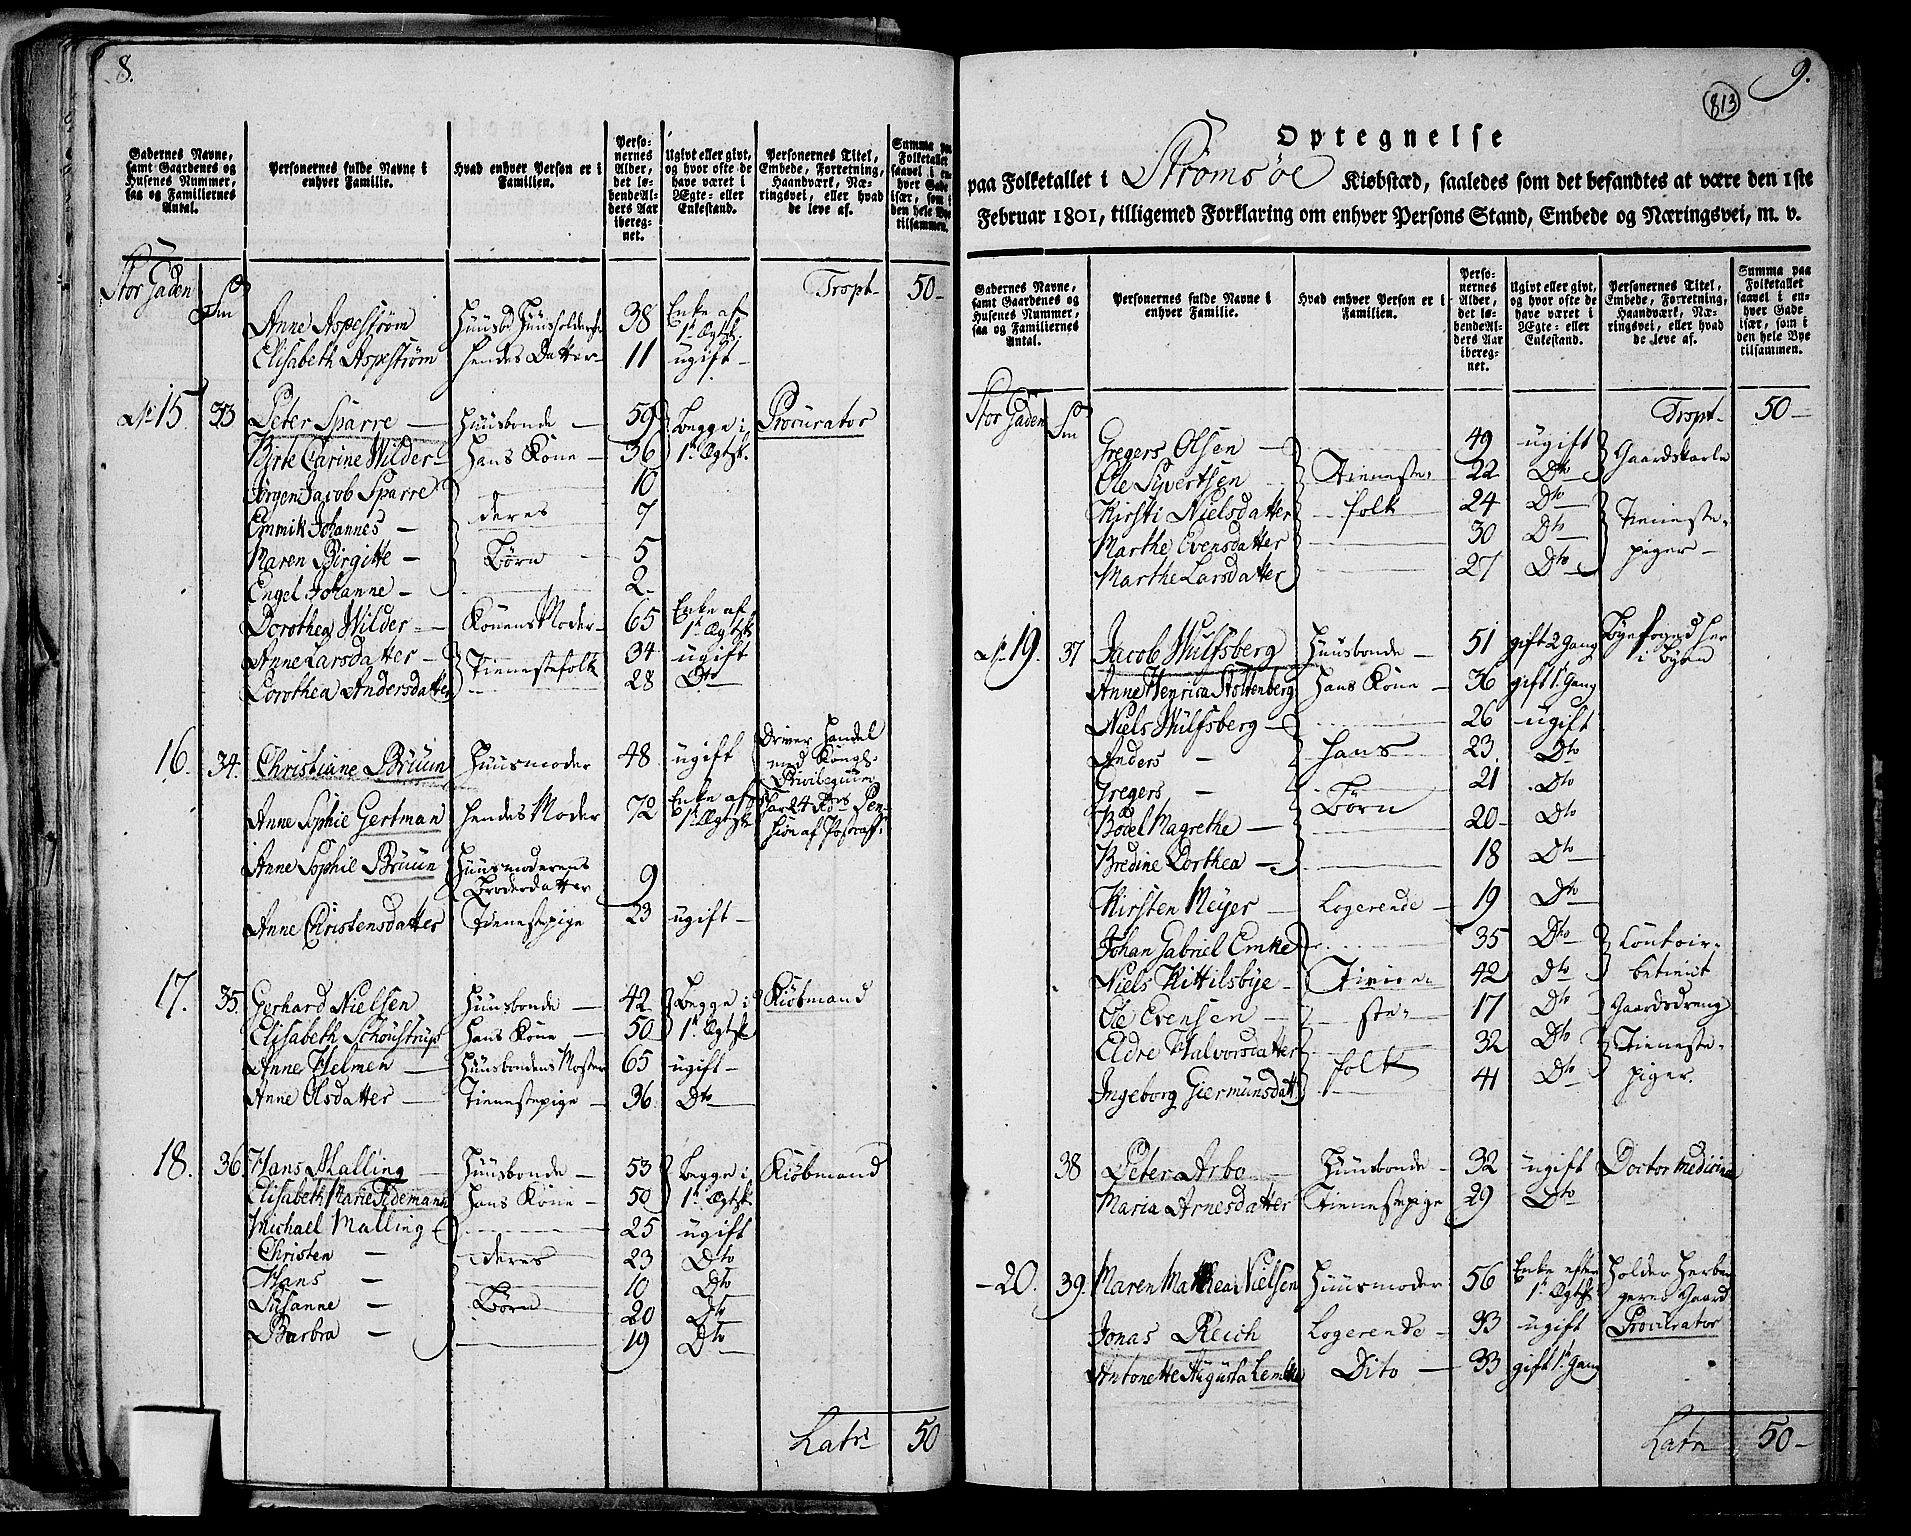 8.
Gadernes Navne, samt Gaardenes og Husenes Nummer, saa og Familiernes Antal.
Personernes fulde Navne i enhver Familie.
Hvad enhver Person er i Familien.
Personernes Alder, det løbendeAlders Aar iberegnet.
Ugivt eller givt, og hvor ofte de have været i Ægte- eller Enkestand.
Personernes Titel, Embede, Forretning, Haandværk, Næringsvei, eller hvad de leve af.
Summa paa Folketallet saavel i enhver Gade især, som i den hele Bye tilsammen.
StorGaden Trspt. 50-
Anne Aspestrøm Huusb Huusholderske 38 Enke af 1ᵗ Ægtsk.
Elisabeth Aspestrøm hendes Datter 11 ugift
No 15. 33 Peter Sparre Huusbonde 59 Begge i 1ᵗ Ægtsk. Procurator
Birte Carine Wilder Hans Kone 36
Jørgen Jacob Sparre deres Børn 10
Emmik Johannes 7
Maren Birgitte 5
Engel Johanne 2
Dorothea Wilder Konens Moder 65 Enke af 1ᵗ Ægtsk
Anne Larsdatter Tienestefolk 34 ugift
Dorothea Andersdatter 28 Dto
16. 34. Christiane Bruun Huusmoder 48 ugift Driver Handel med Kongl. Privilegium
Anne Sophie Gertman hendes Moder 72 Enke af 1ᵗ Ægtsk har 24 Pension af Postcass.
Anne Sophie Bruun Huusmoderens Broderdatter 9
Anne Christensdatter Tienestepige 23 ugift
17. 35. Gerhard Nielsen Huusbonde 42 Begge i 1ᵗ Ægtsk Kiøbmand
Elisabeth Schoustrup Hans Kone 50
Anne Helmen Huusbondens Moster 65 ugift
Anne Olsdatter Tienestepige 36 Dto
18. 36. Hans Malling Huusbonde 53 Begge i 1ᵗ Ægtsk Kiøbmand
Elisabeth Marie Tidemann Hans Kone 50
Michael Malling deres Børn 25 ugift
Christen 23 Dto
Hans 10 Dto
Susanne 20 Dto
Barbra 19 Dto
Latr 50
9.
813
Optegnelse
paa Folketallet i Strømsøe Kiøbstæd, saaledes som det befandtes at være den 1ste
Februar 1801, tilligemed Forklaring om enhver Persons Stand, Embede og Næringsvei, m. v.
Gadernes Navne, samt Gaardenes og Husenes Nummer, saa og Familiernes Antal.
Personernes fulde Navne i enhver Familie.
Hvad enhver Person er i Familien.
Personernes Alder, det løbendeAlders Aar iberegnet.
Ugivt eller givt, og hvor ofte de have været i Ægte- eller Enkestand.
Personernes Titel, Embede, Forretning, Haandværk, Næringsvei, eller hvad de leve af.
Summa paa Folketallet saavel i enhver Gade især, som i den hele Bye tilsammen.
StorGaden Trspt. 50-
Gregers Olsen Tieneste- folk 49 ugift Gaardskarle
Ole Syvertsen 22 Dto
Kirsti Nielsdatter 24 Dto Tieneste- piger
Marthe Evensdatter 30 Dto
Marthe Larsdatter 27 Dto
No 19. 37 Jacob Wulfsberg Huusbonde 51 gift 2 Gang Byefoged her i Byen
Anne Henrica Stoltenberg Hans Kone 36 gift 1ᵗ Gang
Niels Wulfsberg hans Børn 26 ugift
Anders 23 Dto
Gregers 21 Dto
Bodel Magrethe 20 Dto
Bredine Dorthea 18 Dto
Kirsten Meyer Logerende 19 Dto
Johan Gabriel Emke Tiene- ste- folk 35 Dto Contoir- betient
Niels Kittilsbye 42 Dto
Ole Evensen 17 Dto Gaardsdreng
Eldre Halvorsdatter 32 Dto Tieneste- piger.
Ingeborg Giermunsdatt 41 Dto
38 Peter Arbo Huusbonde 32 ugift Doctor Medicina
Maria Arnesdatter Tienestepige 29 Dto
20. 39. Maren Mathea Nielsen Huusmoder 56 Enke efter 1ᵗ Ægtsk Holder Herbergered Gaard
Jonas Reich Logerende 33 ugift Procurator
Antonette Augusta Lemche Dito 33 gift 1ᵗ Gang
Latr 50-